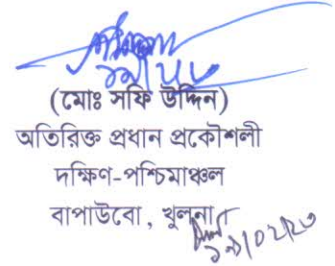 (মোঃ সফি উদ্দিন)
অতিরিক্ত প্রধান প্রকৌশলী
দক্ষিণ-পশ্চিমাঞ্চল
বাপাউবো, খুলনা
১৯/০২/২৩